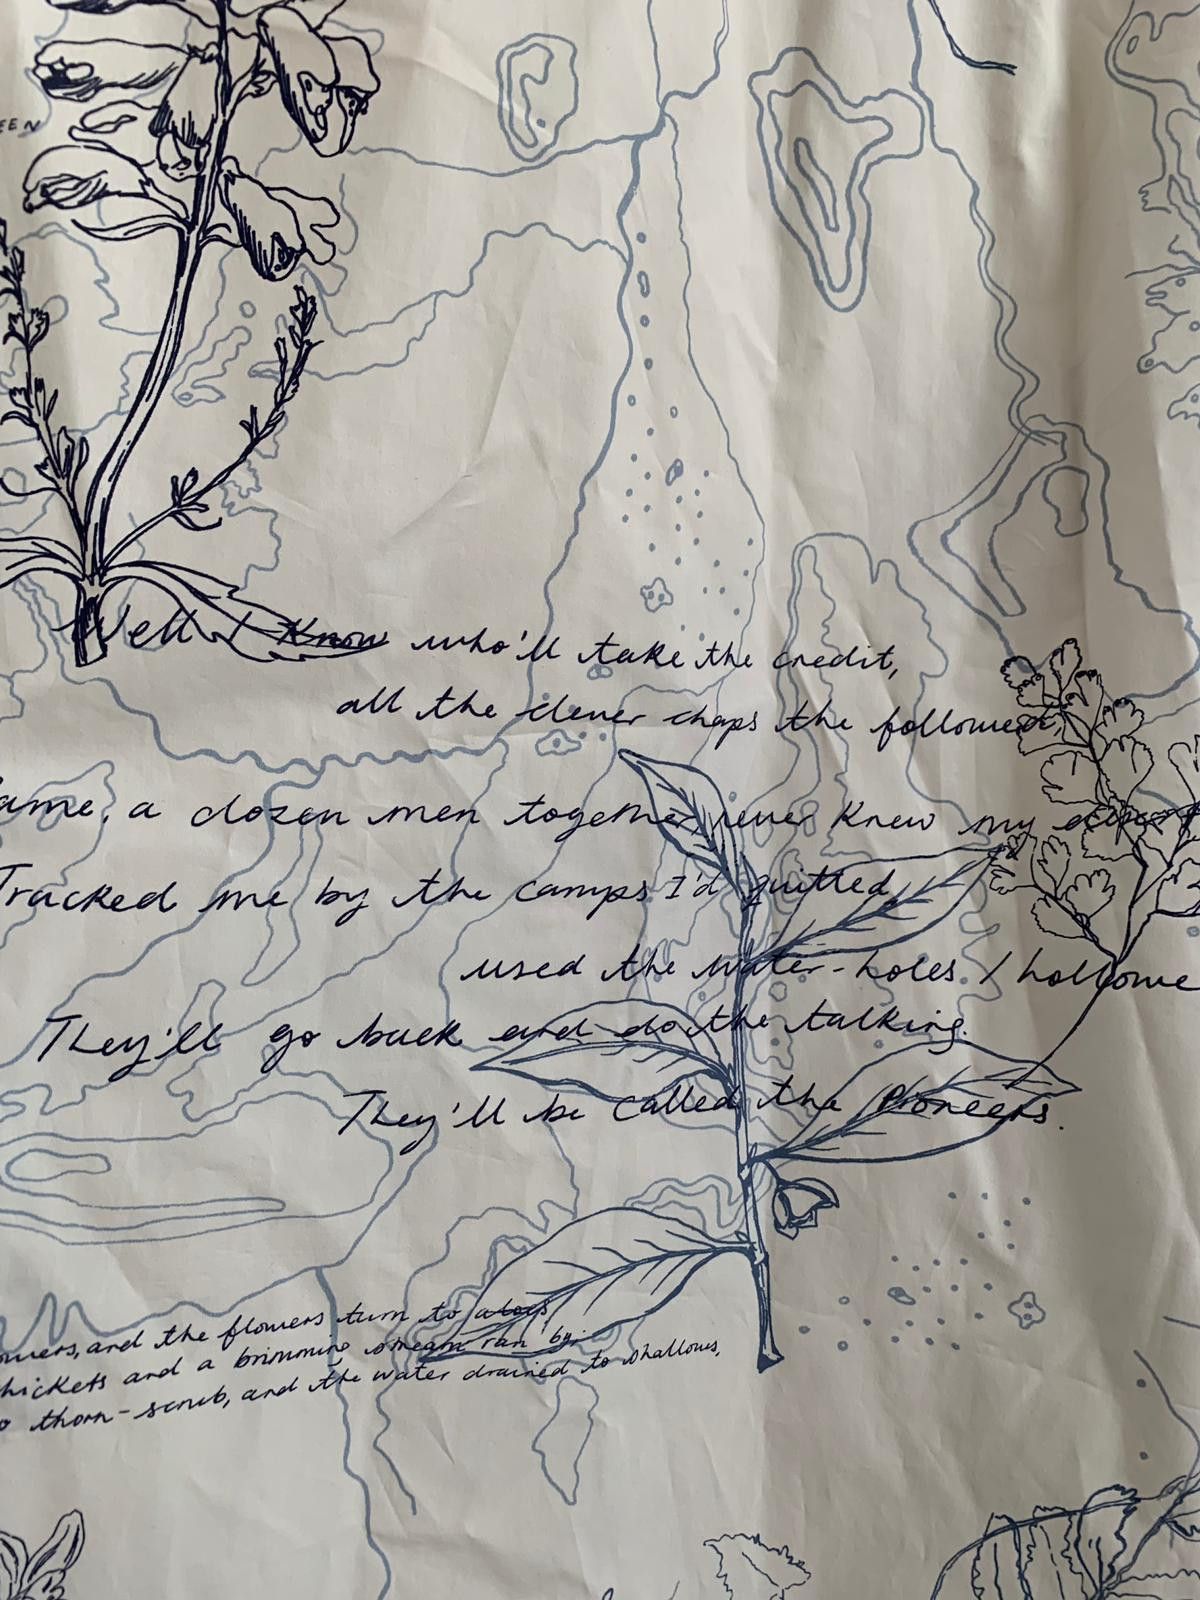 EEN
Well I Know who'll take the credit,
all the clever chaps the followed,
ame, a dozen men together, never Knew my
Tracked me by the camps I'd quitted,
used the water-holes I hollowe
They'll go back and do the talking.
They'll be called the Pioneers.
owers, and the flowers turn to
hickets and a brimming stream ran by;
o thorn-scrub, and the water drained to shallows,